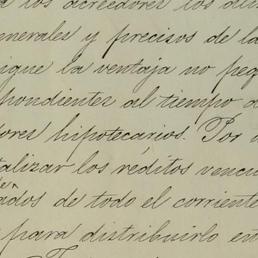 a los acreedores los
enerales y precisos de la
ique la ventaja no peq
pondientes al tiempo d
ores hipotecarios. Por
talizar los réditos vencid
ados de todo el corriente
para distribuirlo en